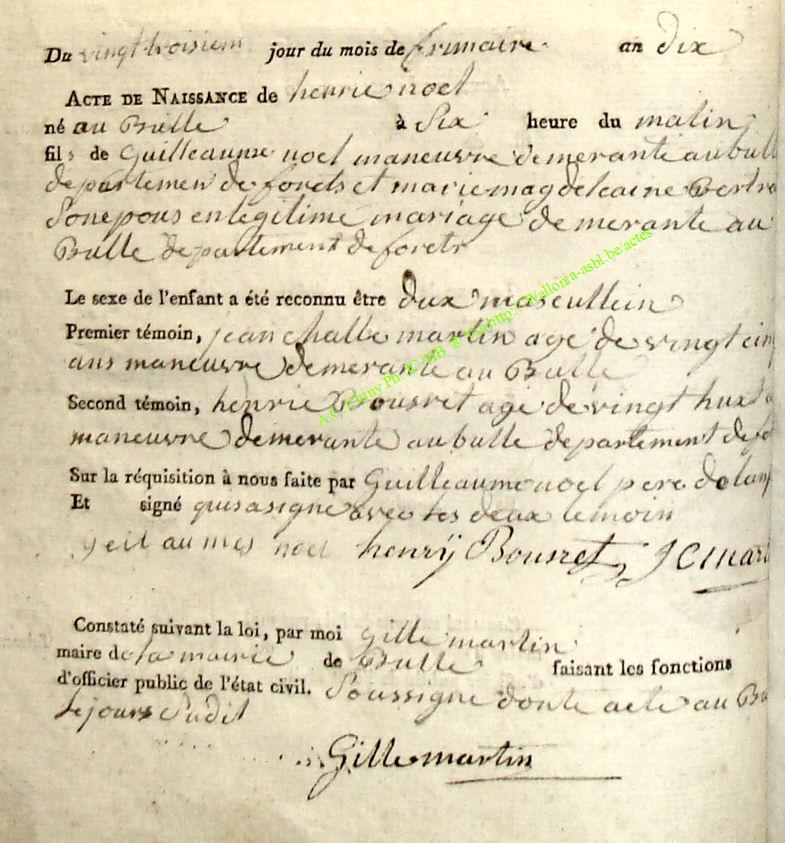 Du vingt troisiem jour du mois de frimaire an dix
ACTE DE NAISSANCE de henrie noel
né au Bulle à Six heure du matin
fils de Guilleaume noel maneuvre demerante au bull
departemen de forets et marie magdelaine Bertra
Son epous en legitime mariage demerante au
Bulle departement de forets
Le sexe de l'enfant a été reconnu être dux masculein
Premier témoin, jean challe martin age de vingt cinq
ans maneuvre demerante au Bulle
Second témoin, henrie Bousret age de vingt huxt
maneuvre demerante au bulle departement de fo
Sur la réquisition à nous faite par Guilleaume noel pere de lanf
Et signé qui sa signe avec les deux temoin
noel henrÿ Bousret J C mart
Constaté suivant la loi, par moi Gille martin
maire de la mairie de Bulle faisant les fonctions
d'officier public de l'état civil. Soussigne donte acte au Bu
le jours Sudit
Gille martin